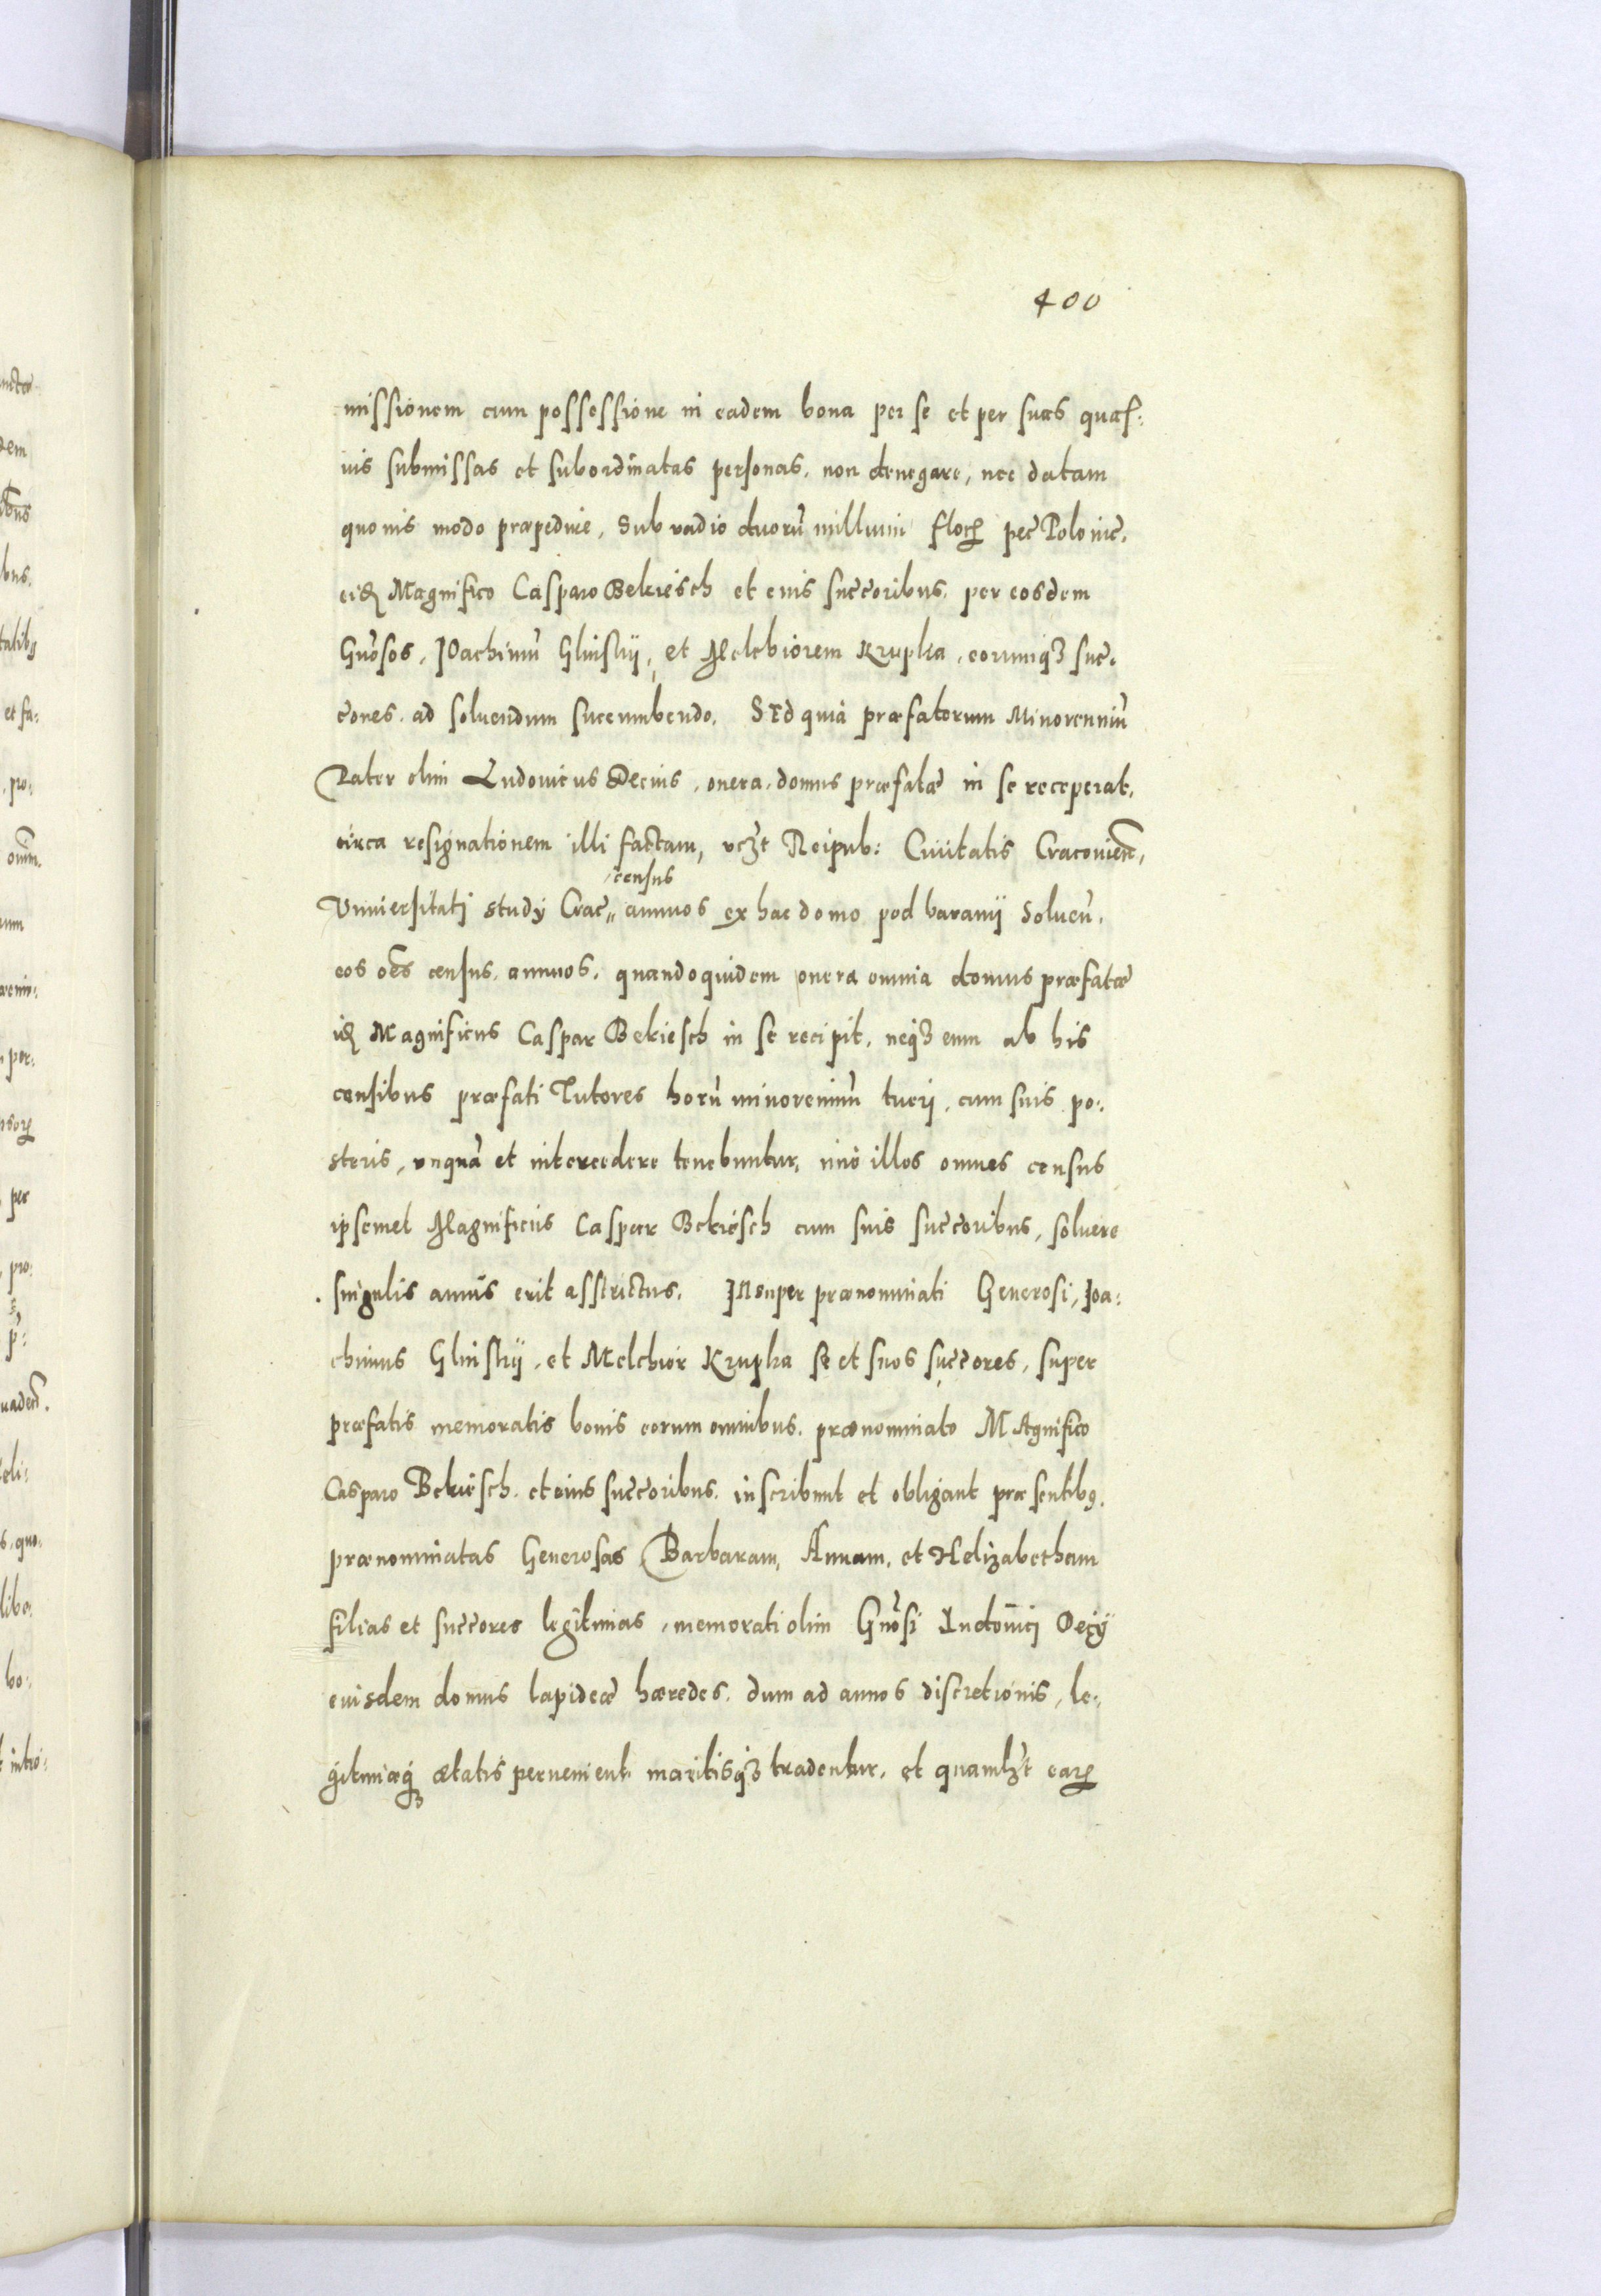 400
missionem cum possessione in eadem bona per se et per suas quas-
uis submissas et subordinatas personas, non denegare, nec datam
quouis modo præpedire, Sub vadio duorũ millium flor pec Polonic.
eid Magnifico Casparo Bekiesch et eius succoribus, per eosdem
Gnosos, Joachimũ Glinskij, et Melchiorem Krupka, eorumq3 suc-
cores, ad soluendum succumbendo. Sed quià præfatorum Minorenniũ
Pater olim Ludouicus Decius, onera domus præfatæ in se receperat,
circa resignationem illi factam, vczt Reipub: Ciuitatis Cracouien,
census
Vniuersitatj studÿ Crac„ annuos ex hac domo pod baranij Soluen,
eos oes census annuos, quandoquidem onera omnia domus præfatæ
id Magnificus Caspar Bekiesch in se recipit, neq3 eum ab his
censibus præfati Tutores horũ minorenniũ tuerj, cum suis po-
steris, vnquã et intercedere tenebuntur, imò illos omnes census
ipsemet Magnificus Caspar Bekiesch cum suis succoribus, soluere
singulis annis erit asstrictus. Insuper prænominati Generosi, Joa-
chimus Glinskij, et Melchior Krupka se et suos succores, super
præfatis memoratis bonis eorum omnibus, prænominato Magnifico
Casparo Bekiesch, et eius succoribus, inscribunt et obligant præsentibus,
prænominatas Generosas Barbaram, Annam, et Helizabetham
filias et succores legitimas, memorati olim Gnosi Ludouicj Decÿ
euisdem domus lapideæ hæredes, dum ad annos discretionis, le-
gitimæq3 ætatis peruenient maritisq3 tradentur, et quamlzt ear